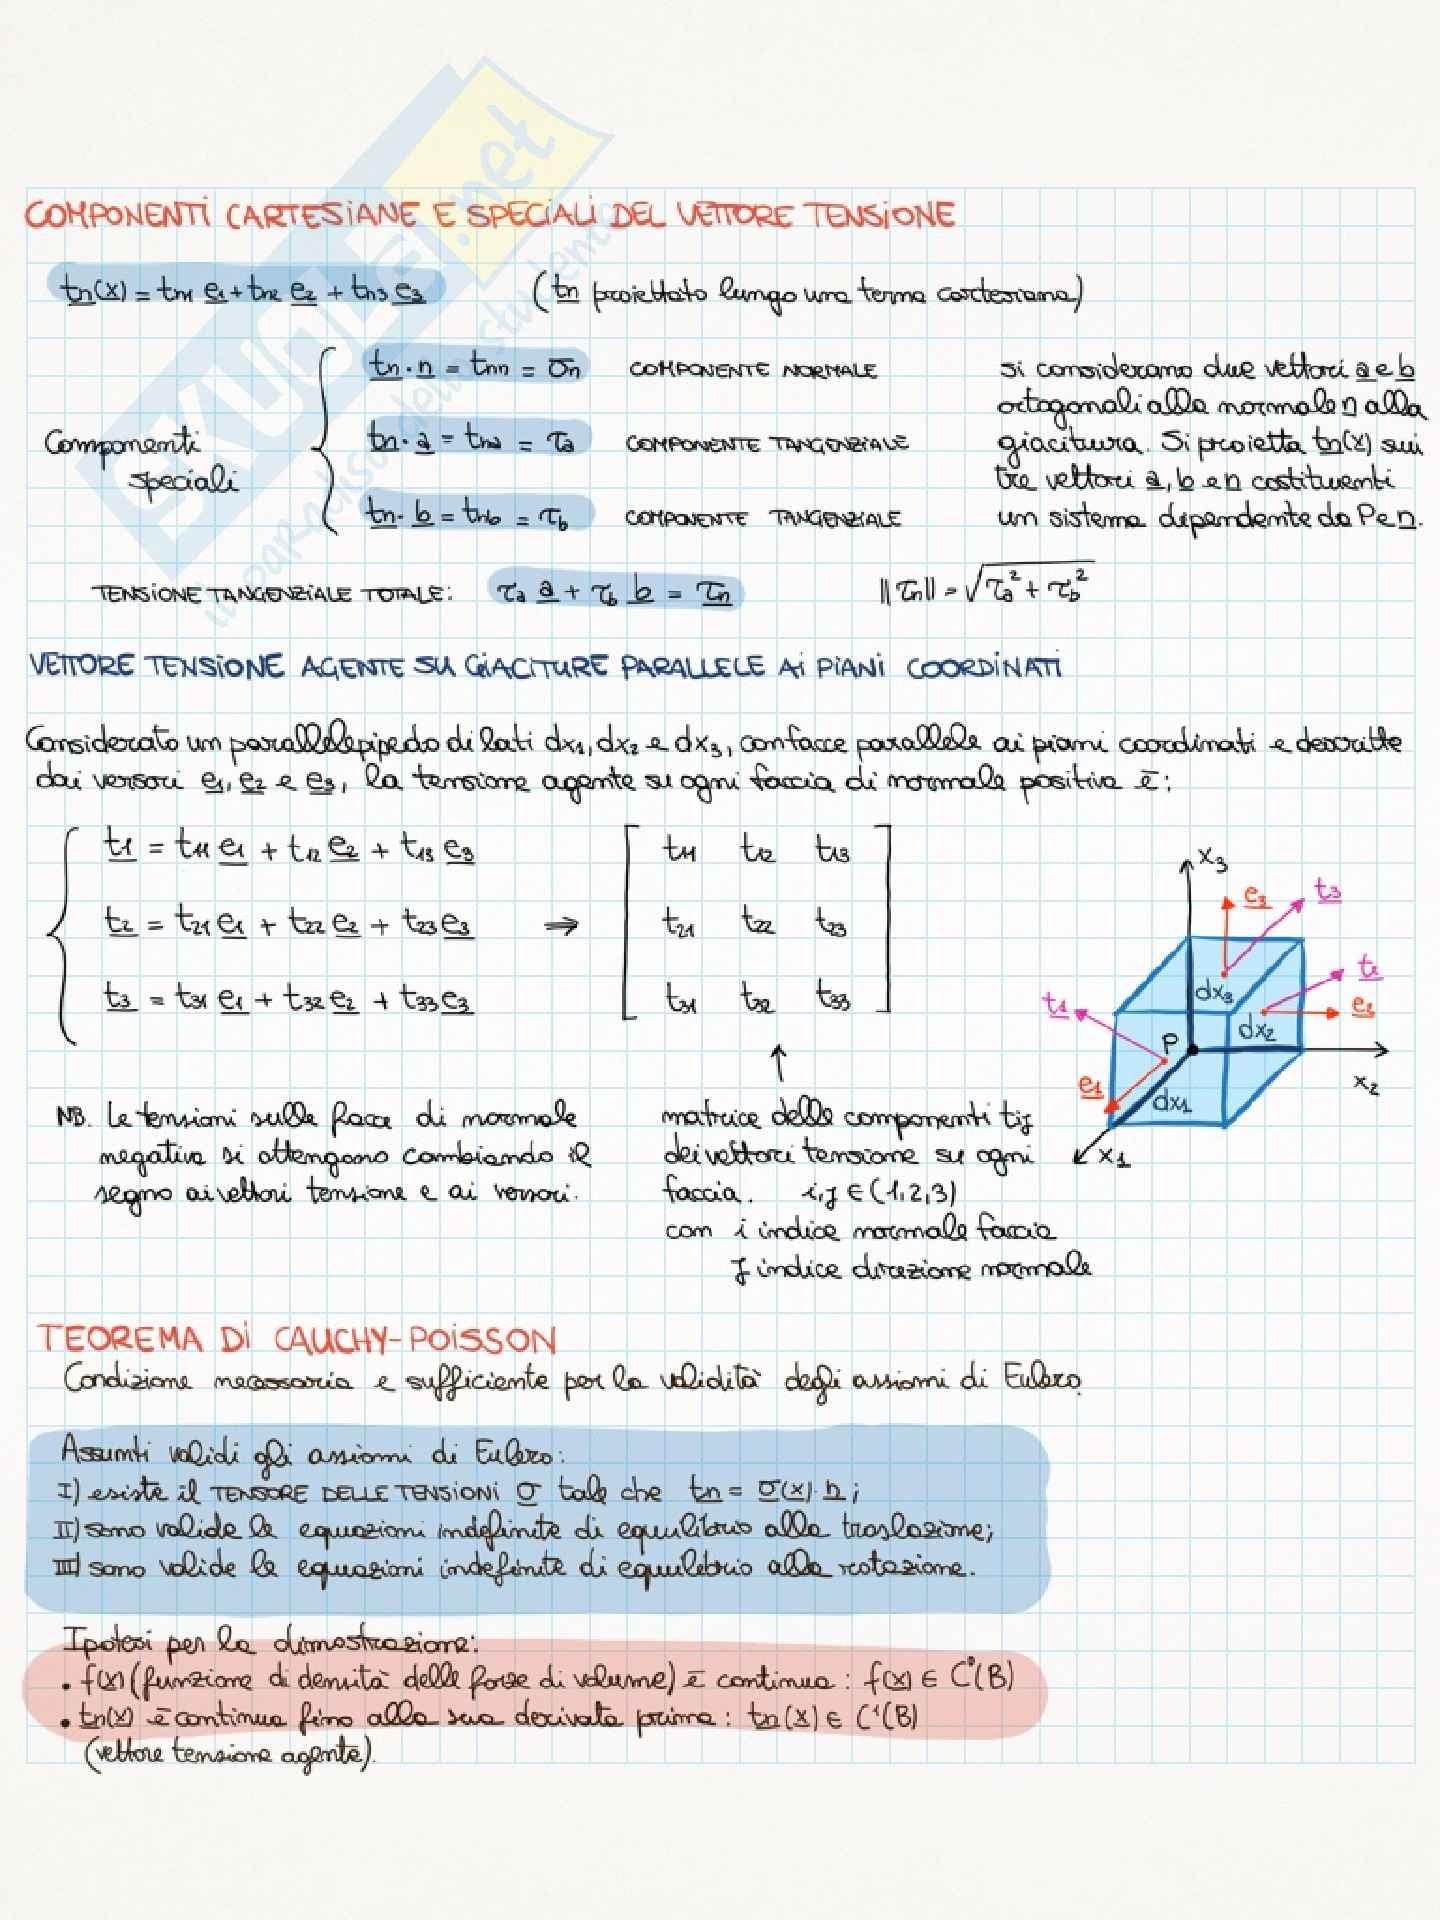 COMPONENTI CARTESIANE E SPECIALI DEL VETTORE TENSIONE
tn(x) = tn1 e1 + tn2 e2 + tn3 e3 (tn proiettato lungo una terna cartesiana)
Componenti speciali
tn · n = tnn = σn COMPONENTE NORMALE
tn · a = tna = τa COMPONENTE TANGENZIALE
tn · b = tnb = τb COMPONENTE TANGENZIALE
si considerano due vettori a e b
ortogonali alla normale n alla
giacitura. Si proietta tn(x) sui
tre vettori a, b e n costituenti
un sistema dipendente da P e n.
TENSIONE TANGENZIALE TOTALE: τa a + τb b = τn ||τn|| = √τa² + τb²
VETTORE TENSIONE AGENTE SU GIACITURE PARALLELE AI PIANI COORDINATI
Considerato un parallelepipedo di lati dx1, dx2 e dx3, con facce parallele ai piani coordinati e descritte
dai versori e1, e2 e e3, la tensione agente su ogni faccia di normale positiva è:
t1 = t11 e1 + t12 e2 + t13 e3
t2 = t21 e1 + t22 e2 + t23 e3 ⇒
t3 = t31 e1 + t32 e2 + t33 e3
t11 t12 t13
t21 t22 t23
t31 t32 t33
x3
e3 t3
t2
dx3
t1 e2
dx2
P
x2
e1 dx1
x1
NB. Le tensioni sulle facce di normale
negativa si ottengono cambiando il
segno ai vettori tensione e ai versori.
matrice delle componenti tij
dei vettori tensione su ogni
faccia. i,j ∈ (1,2,3)
con i indice normale faccia
j indice direzione normale
TEOREMA DI CAUCHY-POISSON
Condizione necessaria e sufficiente per la validità degli assiomi di Eulero.
Assunti validi gli assiomi di Eulero:
I) esiste il TENSORE DELLE TENSIONI σ tale che tn = σ(x) · n;
II) sono valide le equazioni indefinite di equilibrio alla traslazione;
III) sono valide le equazioni indefinite di equilibrio alla rotazione.
Ipotesi per la dimostrazione:
• f(x) (funzione di densità delle forze di volume) è continua : f(x) ∈ C⁰(B)
• tn(x) è continua fino alla sua derivata prima : tn(x) ∈ C¹(B)
(vettore tensione agente).
SKUOLA.net
il paradiso dello studente